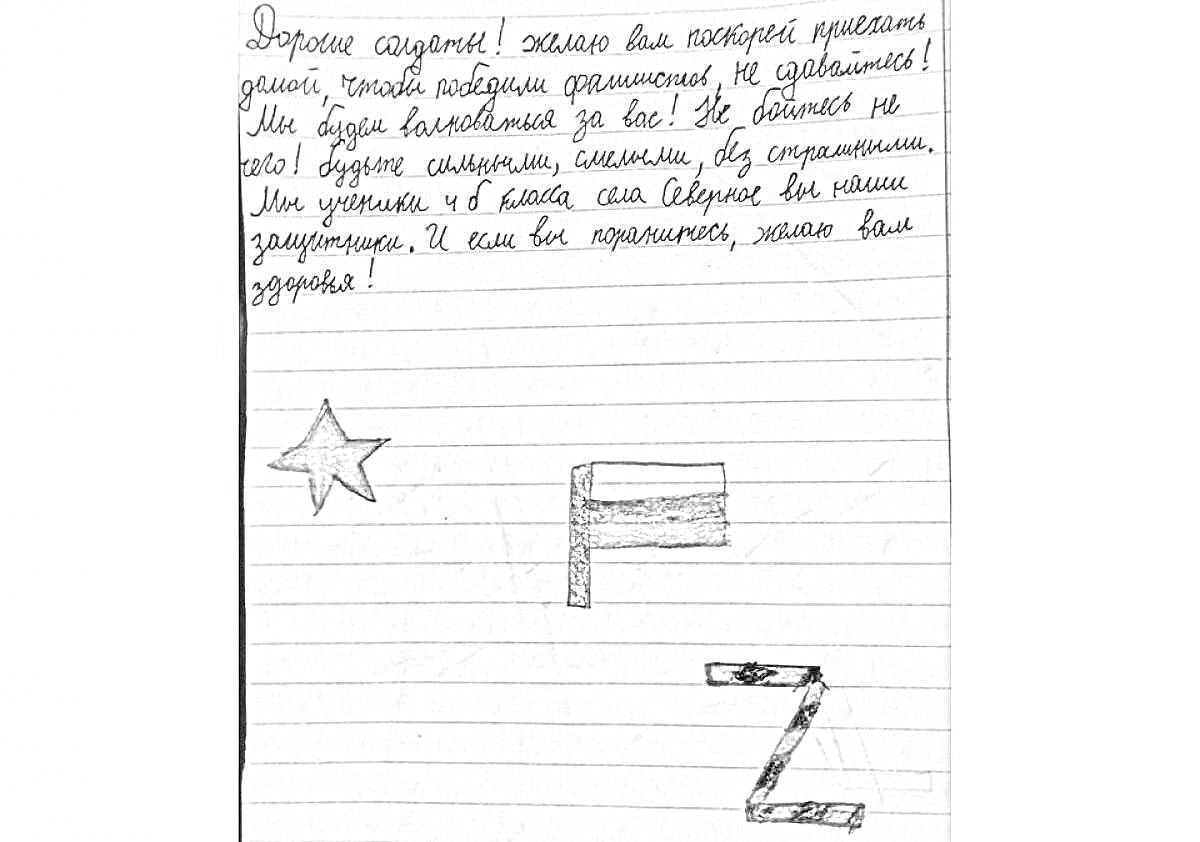 Дорогие солдаты! желаю вам поскорей приехать
домой, чтобы победили фашистов, не сдавайтесь!
Мы будем волноваться за вас! Не бойтесь не
чего! будьте сильными, смелыми, без страшными.
Мы ученики 4 б класса села Северное вы наши
защитники. И если вы поранитесь, желаю вам
здоровья!
Z